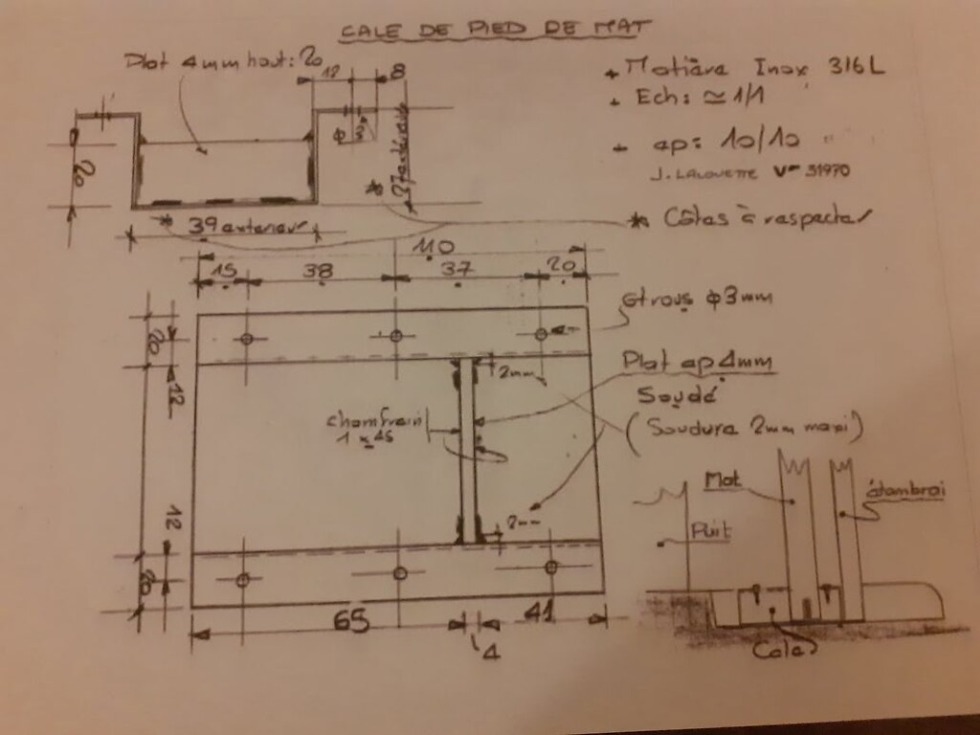 CALE DE PIED DE MAT
Plat 4mm haut: 20
12
8
+ Matière Inox 316L
+ Ech: ≃ 1/1
+ ep: 10/10
J. LALOUETTE
* Côtes à respecter
20
27 extérieur
*
*
39 exterieur
110
15
38
37
20
6 trous ϕ3mm
20
12
2mm
Plat ep 4mm
Soudé
(Soudure 2mm maxi)
chamfrein
1 x 45
12
2mm
20
65
4
41
Mat
étambrai
Puit
Cale